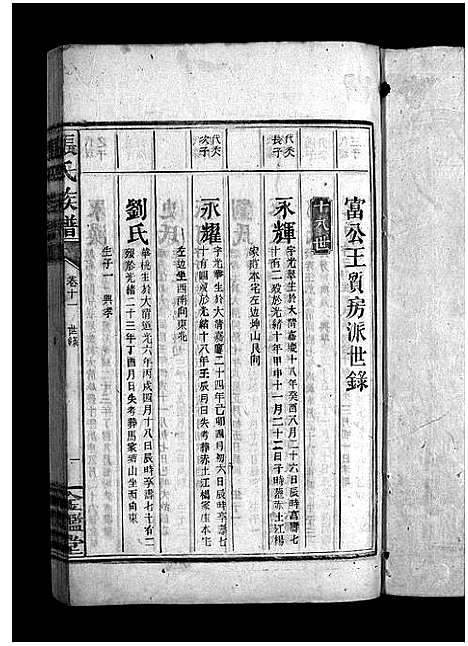 富公王質房派世錄
十八世
代天
長子
永輝
字光華生於大清嘉慶十八年癸酉八月二十六日辰時享壽七
十有二歿於光緒十年甲申十一月二十二日子時葬赤土江楊
家府本宅左边坤山艮向
代天
次子
永耀
字光華生於大清嘉慶二十四年己卯四月初六日辰時享壽七
十有四歿於光緒十八年壬辰月日失考葬赤土江楊家庄本宅
左边坐西南向東北
劉氏
華桃生於大清道光六年丙戌四月十八日辰時享壽七十有二
歿於光緒二十三年丁酉月日失考葬馬家瀆山坐西向東
生子一 興孝
張氏族譜
卷十一
世錄
一
金鑑堂